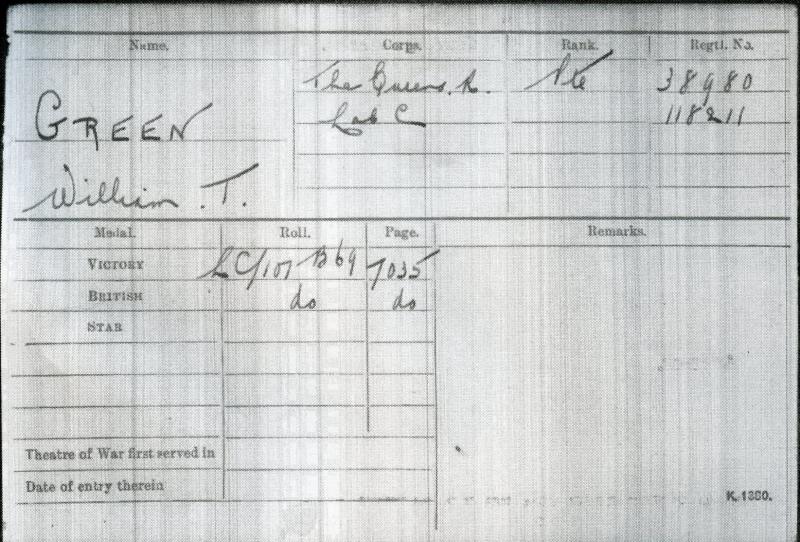 Name. Corps. Rank. Regtl. No.
The Queens. R. Pte 38980
GREEN Lab C 118211
William . T.
Medal. Roll. Page. Remarks.
VICTORY LC/101 B69 7035
BRITISH do do
STAR
Theatre of War first served in
Date of entry therein
K. 1380.